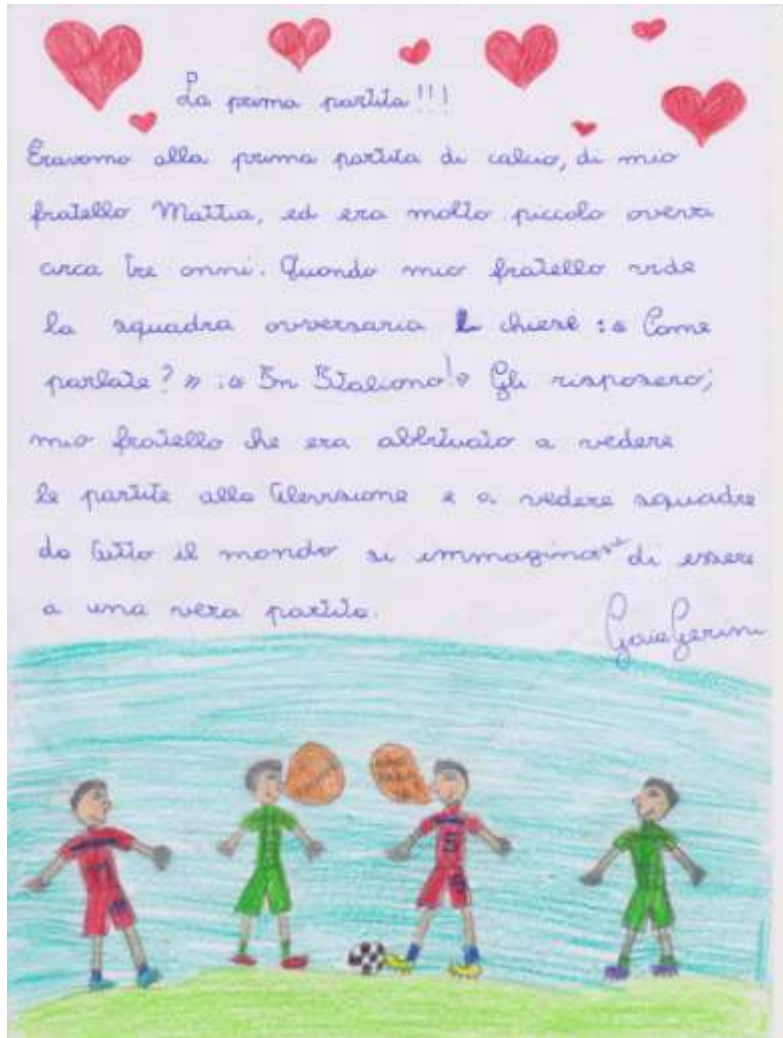 La prima partita!!!
Eravamo alla prima partita di calcio, di mio
fratello Mattia, ed era molto piccolo aveva
circa tre anni. Quando mio fratello vide
la squadra avversaria chiese :« Come
parlate? » :« In Italiano!» Gli risposero;
mio fratello che era abbituato a vedere
le partite alla televisione e a vedere squadre
da tutto il mondo si immaginava di essere
a una vera partita.
Gaia Gerini
5